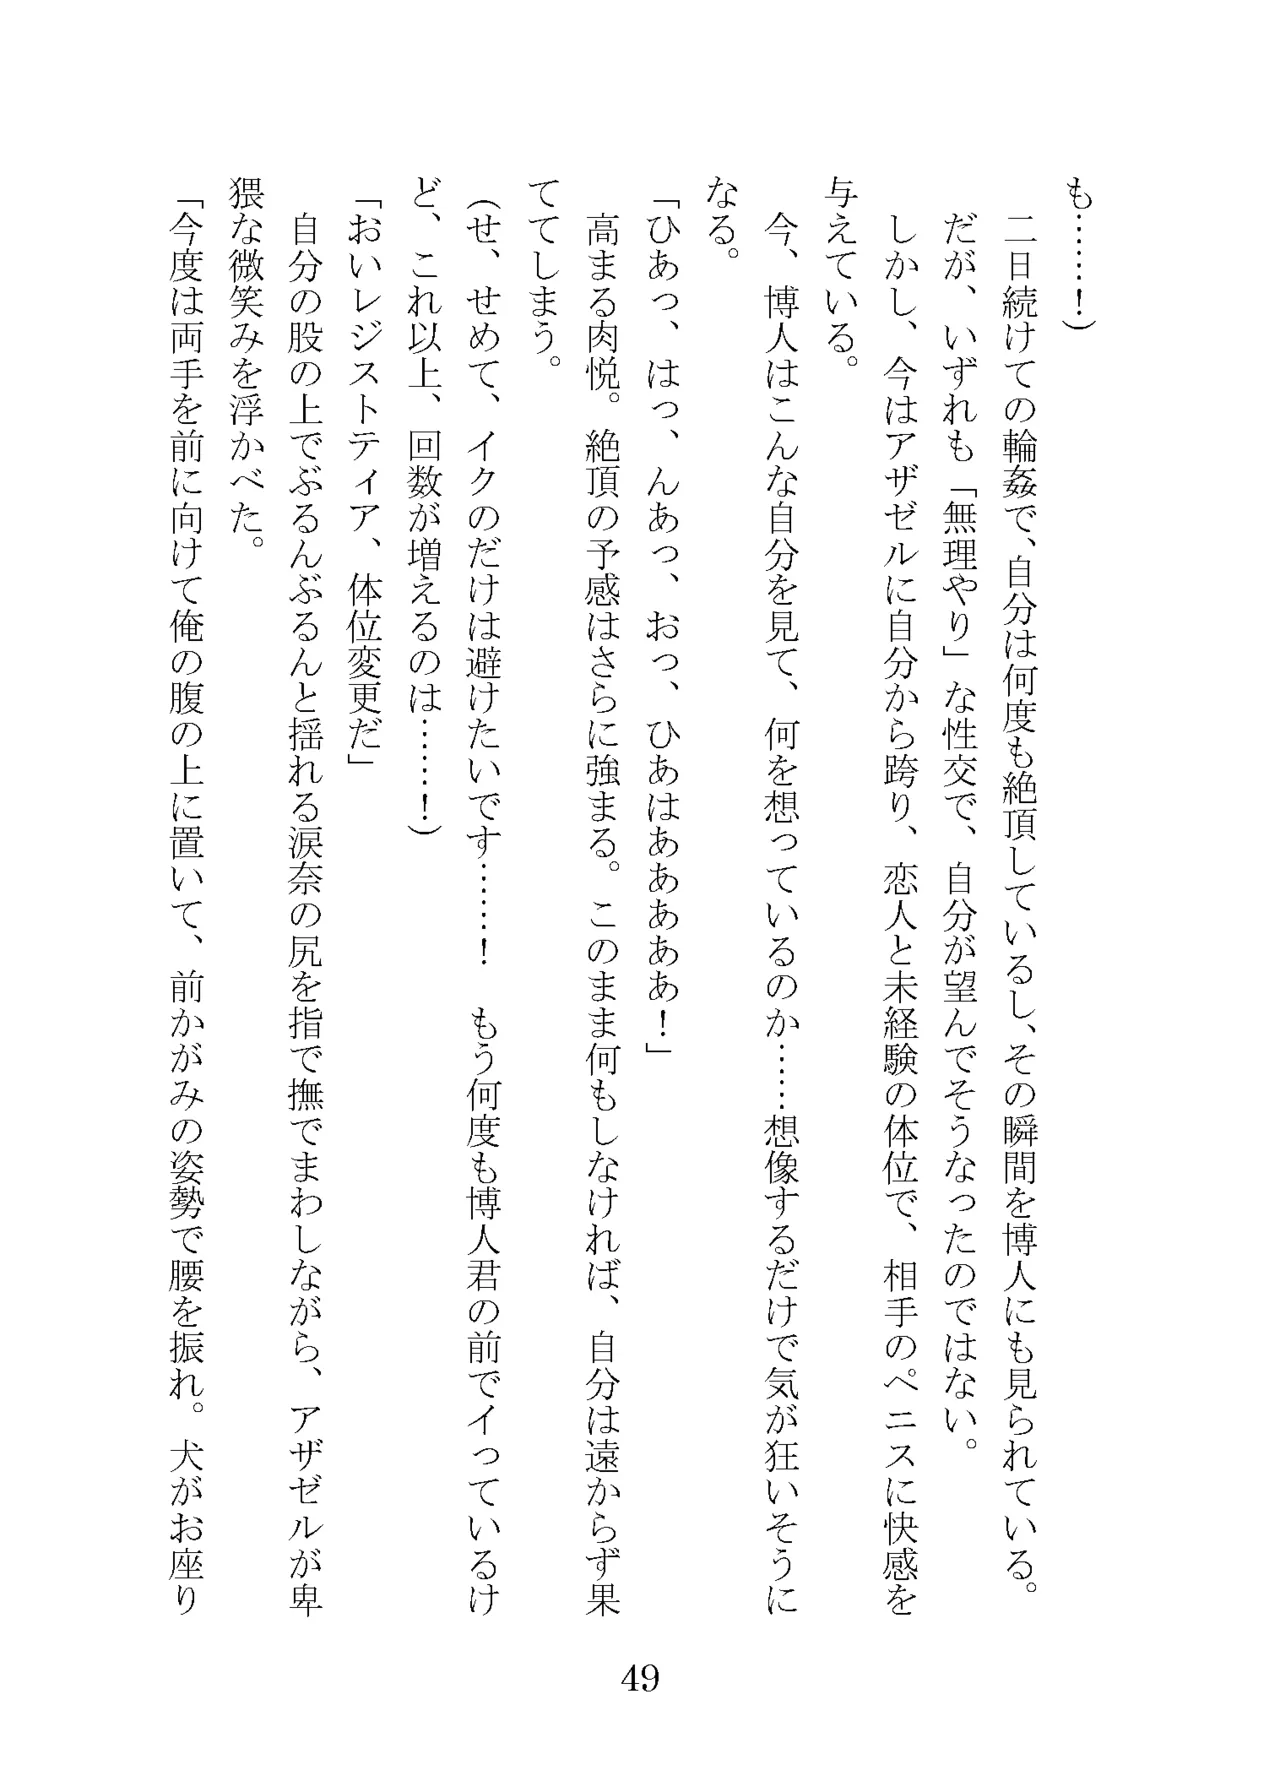 も……！）
　二日続けての輪姦で、自分は何度も絶頂しているし、その瞬間を博人にも見られている。
　だが、いずれも「無理やり」な性交で、自分が望んでそうなったのではない。
　しかし、今はアザゼルに自分から跨り、恋人と未経験の体位で、相手のペニスに快感を
与えている。
　今、博人はこんな自分を見て、何を想っているのか……想像するだけで気が狂いそうに
なる。
「ひあっ、はっ、んあっ、おっ、ひあはああああ！」
　高まる肉悦。絶頂の予感はさらに強まる。このまま何もしなければ、自分は遠からず果
ててしまう。
（せ、せめて、イクのだけは避けたいです……！　もう何度も博人君の前でイっているけ
ど、これ以上、回数が増えるのは……！）
「おいレジストティア、体位変更だ」
　自分の股の上でぶるんぶるんと揺れる涙奈の尻を指で撫でまわしながら、アザゼルが卑
猥な微笑みを浮かべた。
「今度は両手を前に向けて俺の腹の上に置いて、前かがみの姿勢で腰を振れ。犬がお座り
49